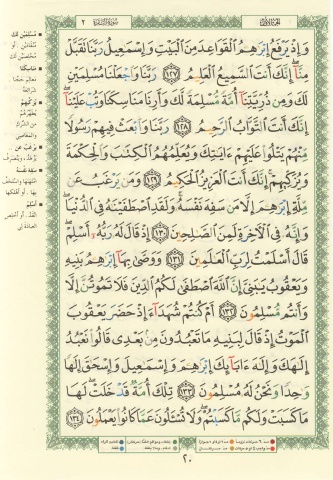 الجزء الأول
سورة البقرة ٢
وَإِذْ يَرْفَعُ إِبْرَٰهِـۧمُ ٱلْقَوَاعِدَ مِنَ ٱلْبَيْتِ وَإِسْمَٰعِيلُ رَبَّنَا تَقَبَّلْ
مِنَّآ إِنَّكَ أَنتَ ٱلسَّمِيعُ ٱلْعَلِيمُ ١٢٧ رَبَّنَا وَٱجْعَلْنَا مُسْلِمَيْنِ
لَكَ وَمِن ذُرِّيَّتِنَآ أُمَّةً مُّسْلِمَةً لَّكَ وَأَرِنَا مَنَاسِكَنَا وَتُبْ عَلَيْنَآ
إِنَّكَ أَنتَ ٱلتَّوَّابُ ٱلرَّحِيمُ ١٢٨ رَبَّنَا وَٱبْعَثْ فِيهِمْ رَسُولًا
مِّنْهُمْ يَتْلُوا۟ عَلَيْهِمْ ءَايَٰتِكَ وَيُعَلِّمُهُمُ ٱلْكِتَٰبَ وَٱلْحِكْمَةَ
وَيُزَكِّيهِمْ إِنَّكَ أَنتَ ٱلْعَزِيزُ ٱلْحَكِيمُ ١٢٩ وَمَن يَرْغَبُ عَن
مِّلَّةِ إِبْرَٰهِـۧمَ إِلَّا مَن سَفِهَ نَفْسَهُۥ وَلَقَدِ ٱصْطَفَيْنَٰهُ فِى ٱلدُّنْيَا
وَإِنَّهُۥ فِى ٱلْـَٔاخِرَةِ لَمِنَ ٱلصَّٰلِحِينَ ١٣٠ إِذْ قَالَ لَهُۥ رَبُّهُۥٓ أَسْلِمْ
قَالَ أَسْلَمْتُ لِرَبِّ ٱلْعَٰلَمِينَ ١٣١ وَوَصَّىٰ بِهَآ إِبْرَٰهِـۧمُ بَنِيهِ
وَيَعْقُوبُ يَٰبَنِىَّ إِنَّ ٱللَّهَ ٱصْطَفَىٰ لَكُمُ ٱلدِّينَ فَلَا تَمُوتُنَّ إِلَّا
وَأَنتُم مُّسْلِمُونَ ١٣٢ أَمْ كُنتُمْ شُهَدَآءَ إِذْ حَضَرَ يَعْقُوبَ
ٱلْمَوْتُ إِذْ قَالَ لِبَنِيهِ مَا تَعْبُدُونَ مِنۢ بَعْدِى قَالُوا۟ نَعْبُدُ
إِلَٰهَكَ وَإِلَٰهَ ءَابَآئِكَ إِبْرَٰهِـۧمَ وَإِسْمَٰعِيلَ وَإِسْحَٰقَ إِلَٰهًا
وَٰحِدًا وَنَحْنُ لَهُۥ مُسْلِمُونَ ١٣٣ تِلْكَ أُمَّةٌ قَدْ خَلَتْ لَهَا
مَا كَسَبَتْ وَلَكُم مَّا كَسَبْتُمْ وَلَا تُسْـَٔلُونَ عَمَّا كَانُوا۟ يَعْمَلُونَ ١٣٤
مسلمين لك
مناسكنا
يزكيهم
يرغب عن
سفه نفسه
أسلم
٢٠